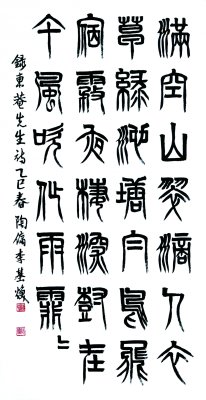 滿空山翠滴人衣
草綠池塘白鳥飛
宿霧夜棲深樹在
午風吹作雨霏霏
錄東菴先生詩乙巳春陶李基